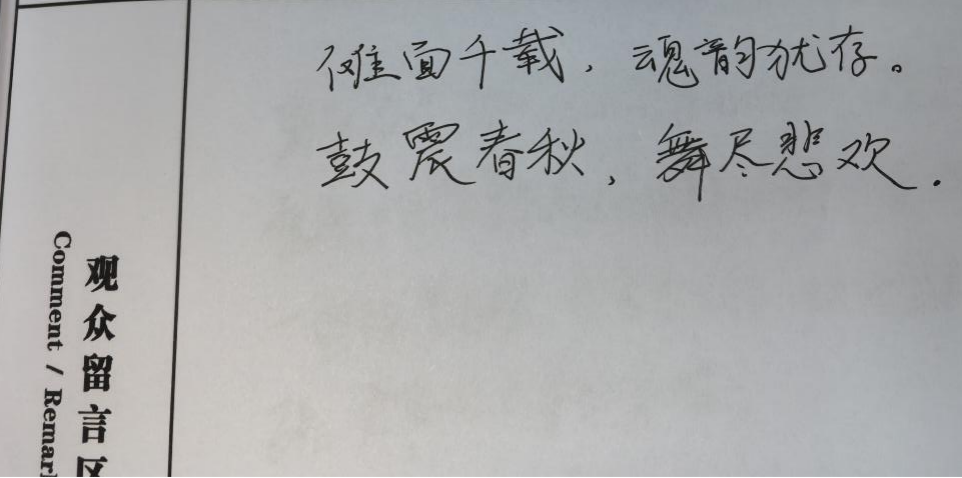 傩面千载，魂韵犹存。
鼓震春秋，舞尽悲欢.
观众留言区
Comment / Remar